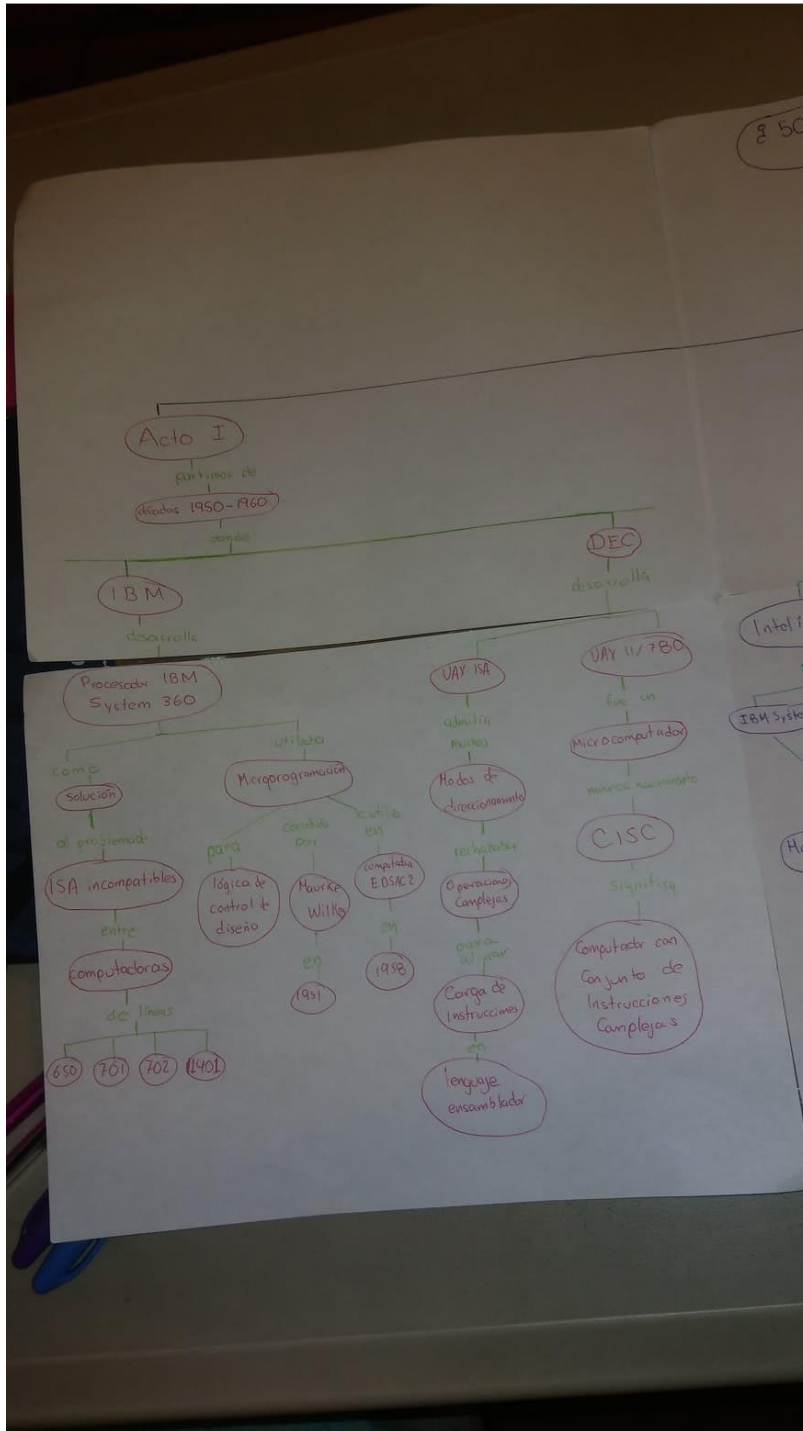 50
Acto I
partimos de
décadas 1950-1960
donde
IBM
desarrolla
Procesador IBM
System 360
como
Solución
al problema de
ISA incompatibles
entre
computadoras
de líneas
650
701
702
1401
utilizaba
Microprogramación
para
lógica de
control de
diseño
por
Maurice
Wilkes
en
1951
en
computadora
EDSAC 2
en
1958
DEC
desarrolla
VAX ISA
admitía
muchos
Modos de
direccionamiento
Operaciones
Complejas
para
Carga de
Instrucciones
en
lenguaje
ensamblador
VAX 11/780
fue un
Microcomputador
CISC
significa
Computador con
Conjunto de
Instrucciones
Complejas
IBM